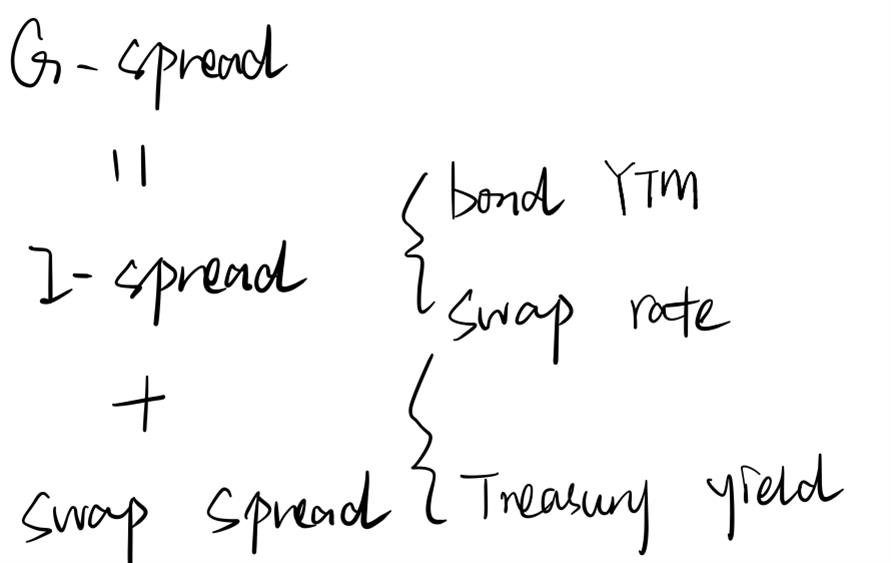 G-spread
=
{ bond YTM
I-spread
swap rate
+
{ Treasury yield
swap spread